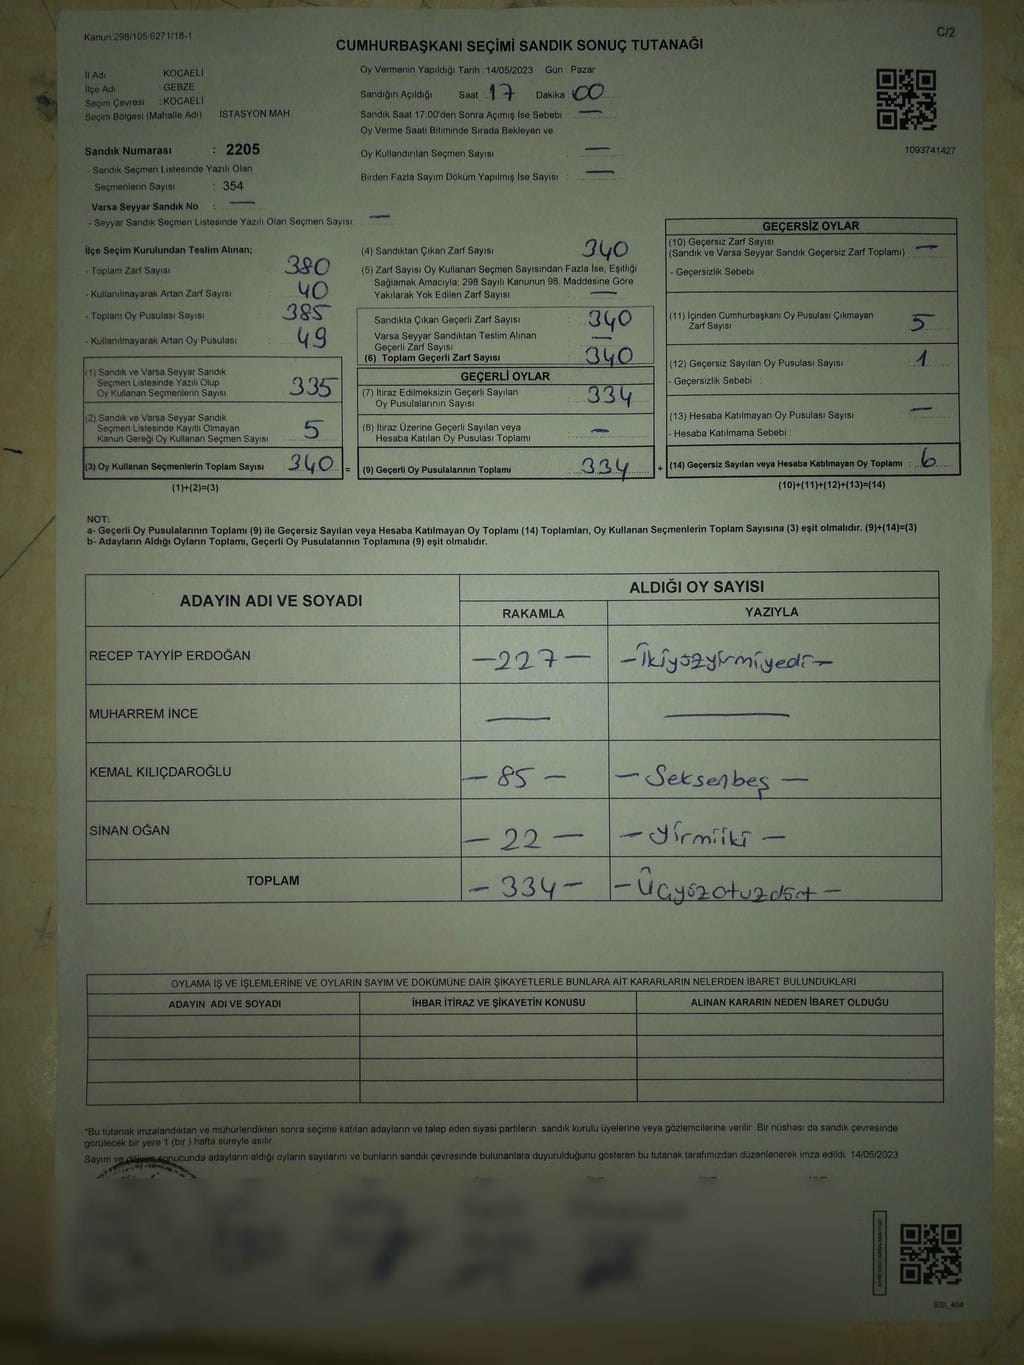 Kanun 298/105 6271/18-1
C/2
CUMHURBAŞKANI SEÇİMİ SANDIK SONUÇ TUTANAĞI
İl Adı KOCAELİ
İlçe Adı : GEBZE
Seçim Çevresi : KOCAELİ
Seçim Bölgesi (Mahalle Adı) İSTASYON MAH
Sandık Numarası : 2205
- Sandık Seçmen Listesinde Yazılı Olan
Seçmenlerin Sayısı : 354
Varsa Seyyar Sandık No : —
- Seyyar Sandık Seçmen Listesinde Yazılı Olan Seçmen Sayısı: —
Oy Vermenin Yapıldığı Tarih : 14/05/2023 Gün : Pazar
Sandığın Açıldığı Saat 17 Dakika : 00
Sandık Saat 17:00'den Sonra Açımış İse Sebebi : —
Oy Verme Saati Bitiminde Sırada Bekleyen ve
Oy Kullandırılan Seçmen Sayısı : —
Birden Fazla Sayım Döküm Yapılmış İse Sayısı : —
1093741427
İlçe Seçim Kurulundan Teslim Alınan;
- Toplam Zarf Sayısı : 380
- Kullanılmayarak Artan Zarf Sayısı : 40
- Toplam Oy Pusulası Sayısı : 385
- Kullanılmayarak Artan Oy Pusulası : 49
(1) Sandık ve Varsa Seyyar Sandık
Seçmen Listesinde Yazılı Olup
Oy Kullanan Seçmenlerin Sayısı : 335
(2) Sandık ve Varsa Seyyar Sandık
Seçmen Listesinde Kayıtlı Olmayan
Kanun Gereği Oy Kullanan Seçmen Sayısı : 5
(3) Oy Kullanan Seçmenlerin Toplam Sayısı : 340 =
(1)+(2)=(3)
(4) Sandıktan Çıkan Zarf Sayısı : 340
(5) Zarf Sayısı Oy Kullanan Seçmen Sayısından Fazla İse, Eşitliği
Sağlamak Amacıyla; 298 Sayılı Kanunun 98. Maddesine Göre
Yakılarak Yok Edilen Zarf Sayısı : —
Sandıkta Çıkan Geçerli Zarf Sayısı : 340
Varsa Seyyar Sandıktan Teslim Alınan
Geçerli Zarf Sayısı : —
(6) Toplam Geçerli Zarf Sayısı : 340
GEÇERLİ OYLAR
(7) İtiraz Edilmeksizin Geçerli Sayılan
Oy Pusulalarının Sayısı : 334
(8) İtiraz Üzerine Geçerli Sayılan veya
Hesaba Katılan Oy Pusulası Toplamı : —
(9) Geçerli Oy Pusulalarının Toplamı : 334 +
GEÇERSİZ OYLAR
(10) Geçersiz Zarf Sayısı
(Sandık ve Varsa Seyyar Sandık Geçersiz Zarf Toplamı) : —
- Geçersizlik Sebebi :
(11) İçinden Cumhurbaşkanı Oy Pusulası Çıkmayan
Zarf Sayısı : 5
(12) Geçersiz Sayılan Oy Pusulası Sayısı : 1
- Geçersizlik Sebebi :
(13) Hesaba Katılmayan Oy Pusulası Sayısı : —
- Hesaba Katılmama Sebebi :
(14) Geçersiz Sayılan veya Hesaba Katılmayan Oy Toplamı : 6
(10)+(11)+(12)+(13)=(14)
NOT:
a- Geçerli Oy Pusulalarının Toplamı (9) ile Geçersiz Sayılan veya Hesaba Katılmayan Oy Toplamı (14) Toplamları, Oy Kullanan Seçmenlerin Toplam Sayısına (3) eşit olmalıdır. (9)+(14)=(3)
b- Adayların Aldığı Oyların Toplamı, Geçerli Oy Pusulalarının Toplamına (9) eşit olmalıdır.
ADAYIN ADI VE SOYADI ALDIĞI OY SAYISI
RAKAMLA YAZIYLA
RECEP TAYYİP ERDOĞAN —227— —İkiyüzyirmiyedi—
MUHARREM İNCE — —
KEMAL KILIÇDAROĞLU —85— —Seksenbeş—
SİNAN OĞAN —22— —yirmiiki—
TOPLAM —334— —Üçyüzotuzdört—
OYLAMA İŞ VE İŞLEMLERİNE VE OYLARIN SAYIM VE DÖKÜMÜNE DAİR ŞİKAYETLERLE BUNLARA AİT KARARLARIN NELERDEN İBARET BULUNDUKLARI
ADAYIN ADI VE SOYADI İHBAR İTİRAZ VE ŞİKAYETİN KONUSU ALINAN KARARIN NEDEN İBARET OLDUĞU
*Bu tutanak imzalandıktan ve mühürlendikten sonra seçime katılan adayların ve talep eden siyasi partilerin sandık kurulu üyelerine veya gözlemcilerine verilir. Bir nüshası da sandık çevresinde
görülecek bir yere 1 (bir ) hafta süreyle asılır.
Sayım ve döküm sonucunda adayların aldığı oyların sayılarını ve bunların sandık çevresinde bulunanlara duyurulduğunu gösteren bu tutanak tarafımızdan düzenlenerek imza edildi. 14/05/2023